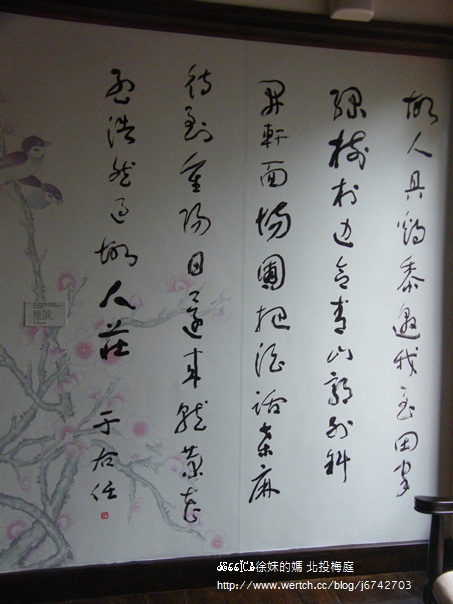 故人具鷄黍邀我至田家
綠樹村边合青山郭外斜
開軒面場圃把酒話桑麻
待到重陽日還來就菊花
孟浩然過故人莊 于右任
JessiCa徐妹的媽 北投梅庭
http://www.wertch.cc/blog/j6742703